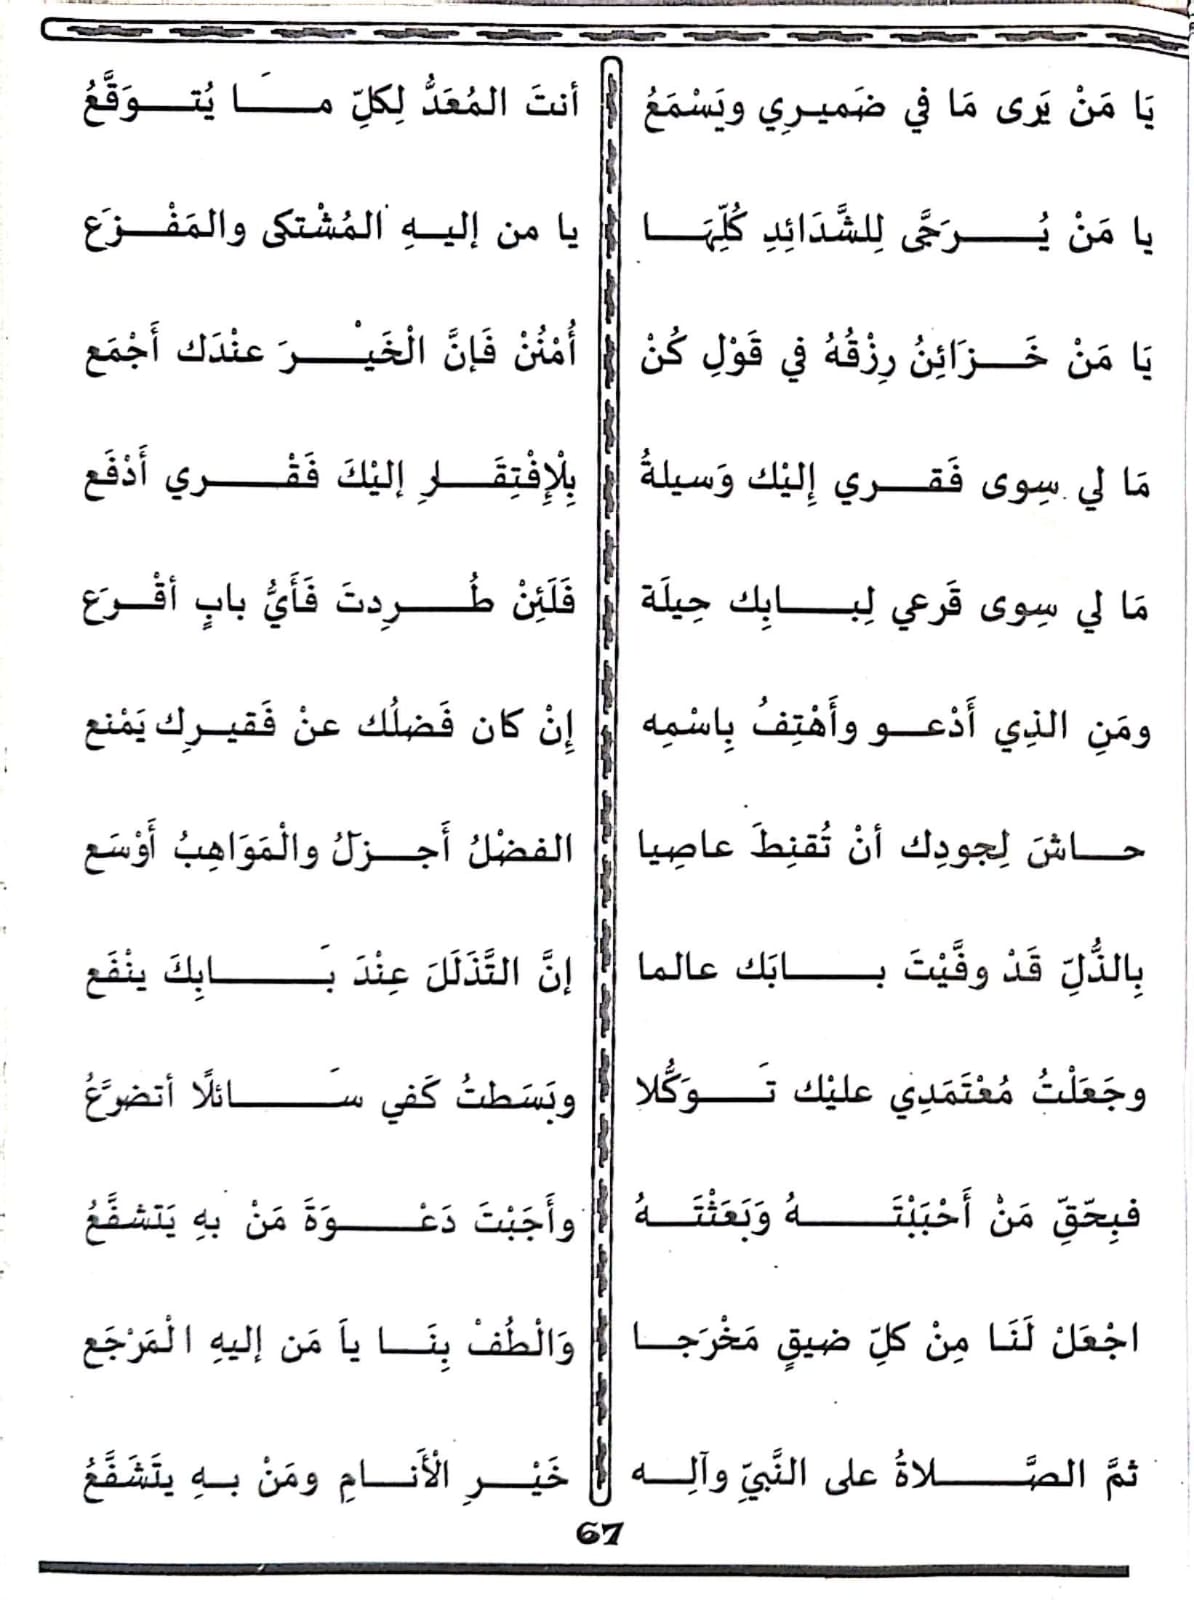 يَا مَنْ يَرى مَا في ضَميري ويَسْمَعُ أنتَ المُعَدُّ لِكلِّ مَا يُتوَقَّعُ
يا مَنْ يُرَجَّى لِلشَّدَائِدِ كُلِّهَا يا من إليهِ المُشْتكى والمَفْزَع
يَا مَنْ خَزَائِنُ رِزْقُهُ في قَوْلِ كُنْ أُمْنُنْ فَإنَّ الْخَيْرَ عنْدَك أَجْمَع
مَا لي سِوى فَقري إِليْك وَسيلةُ بِلْإِفْتِقَارِ إليْكَ فَقْري أَدْفَع
مَا لي سِوى قَرعي لِبابِك حِيلَة فَلَئِنْ طُرِدتَ فَأَيُّ بابٍ أقْرَع
ومَنِ الذِي أَدْعو وأَهْتِفُ بِاسْمِه إِنْ كان فَضلُك عنْ فَقيرِك يَمْنع
حاشَ لِجودِك أنْ تُقنِطَ عاصِيا الفضْلُ أَجزلُ والْمَوَاهِبُ أَوْسَع
بِالذُّلِّ قَدْ وفَّيْتَ بابَك عالما إنَّ التَّذَلَلَ عِنْدَ بَابِكَ ينْفَع
وجَعَلْتُ مُعْتَمَدِي عليْك تَوَكُّلا وبَسَطتُ كَفي سَائلًا أتضرَّعُ
فبِحّقِّ مَنْ أَحْبَبْتَهُ وَبَعَثْتَهُ وأَجَبْتَ دَعْوَةَ مَنْ بهِ يَتشفَّعُ
اجْعَلْ لَنَا مِنْ كلِّ ضيقٍ مَخْرَجا وَالْطُفْ بِنَا ياَ مَن إليهِ الْمَرْجَع
ثمَّ الصَّلاةُ على النَّبيِّ وآلِه خَيْرِ الْأَنامِ ومَنْ بهِ يتَشَفَّعُ
67